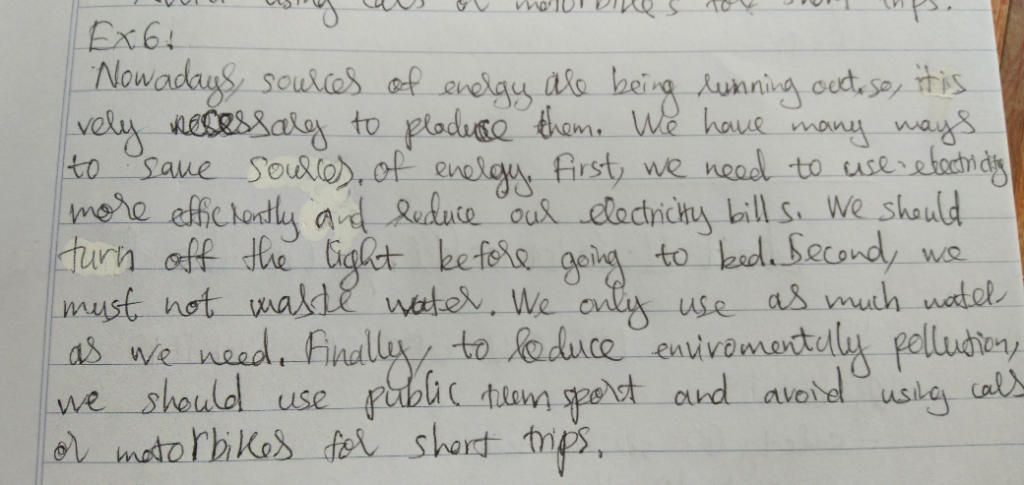 using cars or motorbikes for short trips.
Ex6:
Nowadays, sources of energy are being running out, so, it is
very necessary to produce them. We have many ways
to save sources. of energy. First, we need to use electricity
more efficiently and reduce our electricity bills. We should
turn off the light before going to bed. Second, we
must not waste water. We only use as much water
as we need. Finally, to reduce enviromentaly pollution,
we should use public and avoid using cars
or motorbikes for short trips.